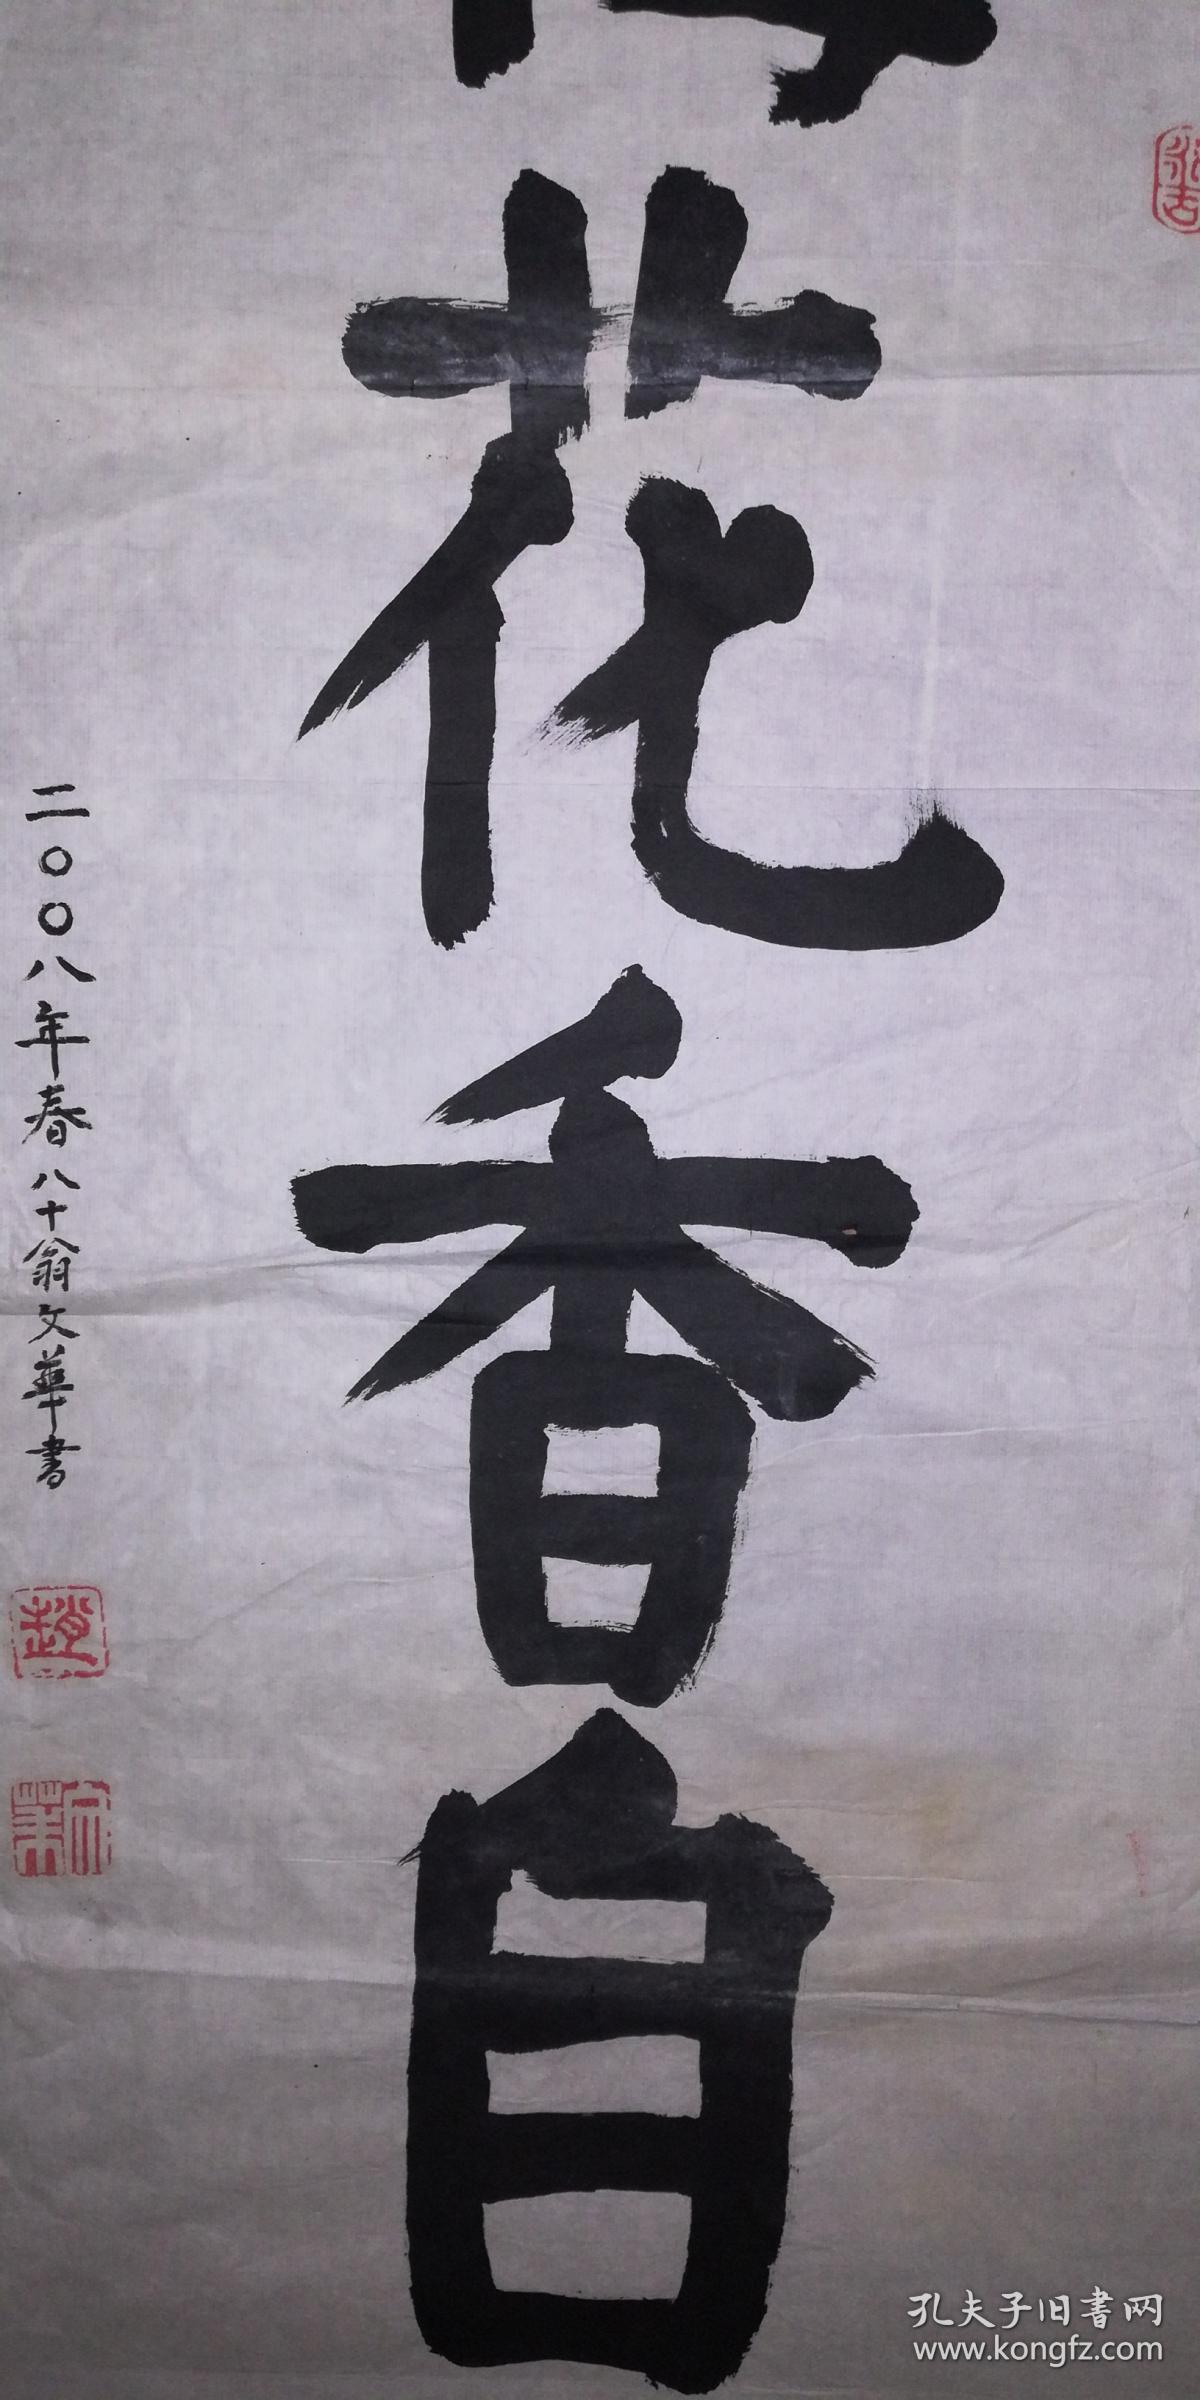 花香自
二〇〇八年春八十翁文華書
趙
文華
孔夫子旧書网
www.kongfz.com